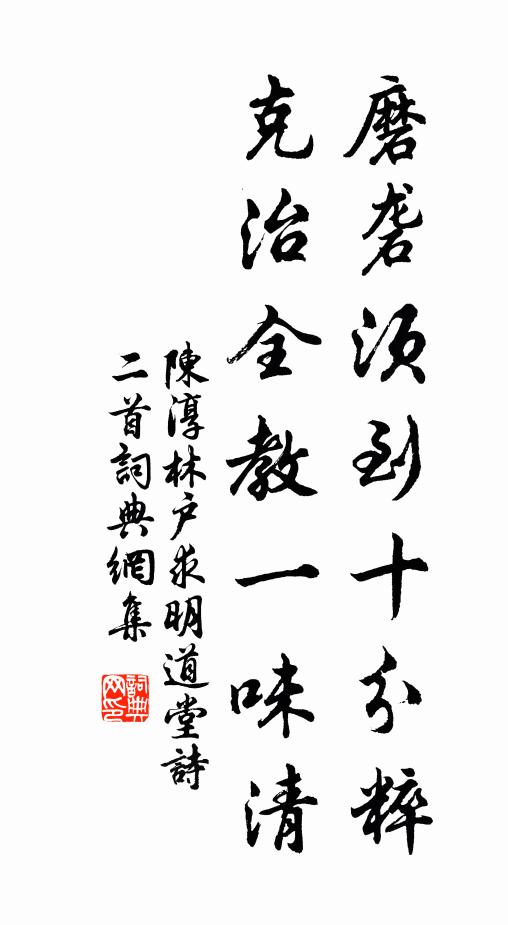 磨砻须到十分粹
克治全教一味清
陳淳林户求明道堂詩
二首詞典網集
詞典网印